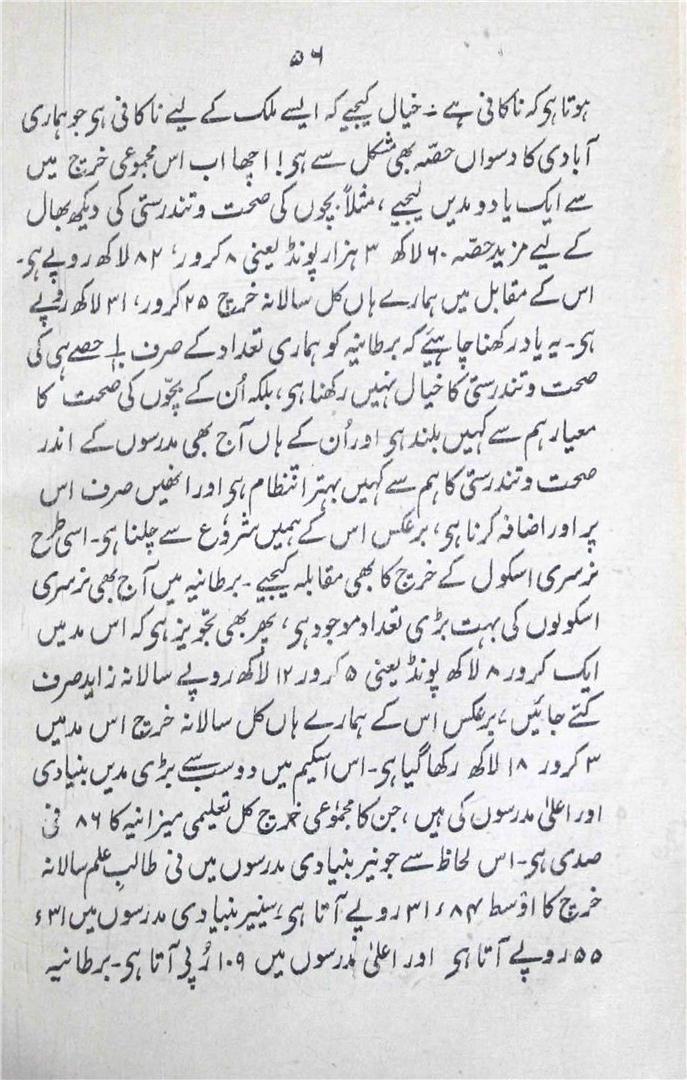 ۵۶
ہوتا ہو کہ ناکافی ہے ۔ خیال کیجیے کہ ایسے ملک کے لیے ناکافی ہو جو ہماری
آبادی کا دسواں حصّہ بھی مشکل سے ہو! اچھا اب اس مجموعی خرچ میں
سے ایک یا دو مدیں لیجیے ، مثلاً بچوں کی صحت و تندرستی کی دیکھ بھال
کے لیے مزید حصّہ ۶۰ لاکھ ۳ ہزار پونڈ یعنی ۸ کرور ، ۸۲ لاکھ روپے ہو۔
اس کے مقابل میں ہمارے ہاں کل سالانہ خرچ ۲۵ کرور ، ۳۱ لاکھ روپے
ہو۔ یہ یاد رکھنا چاہیئے کہ برطانیہ کو ہماری تعداد کے صرف حصے ہی کی
صحت و تندرستی کا خیال نہیں رکھنا ہو ، بلکہ اُن کے بچّوں کی صحت کا
معیار ہم سے کہیں بلند ہو اور اُن کے ہاں آج بھی مدرسوں کے اندر
صحت و تندرستی کا ہم سے کہیں بہتر انتظام ہو اور انھیں صرف اس
پر اور اضافہ کرنا ہو ، برعکس اس کے ہمیں شروع سے چلنا ہو۔ اسی طرح
نرسری اسکول کے خرچ کا بھی مقابلہ کیجیے ۔ برطانیہ میں آج بھی نرسری
اسکولوں کی بہت بڑی تعداد موجود ہو ، پھر بھی تجویز ہو کہ اس مد میں
ایک کرور ۸ لاکھ پونڈ یعنی ۵ کرور ۱۲ لاکھ روپے سالانہ زاید صرف
کئے جائیں ، برعکس اس کے ہمارے ہاں کل سالانہ خرچ اس مد میں
۳ کرور ۱۸ لاکھ رکھا گیا ہو۔ اس اسکیم میں دو سب سے بڑی مدیں بنیادی
اور اعلیٰ مدرسوں کی ہیں ، جن کا مجموعی خرچ کل تعلیمی میزانیہ کا ۸۶ فی
صدی ہو۔ اس لحاظ سے جونیر بنیادی مدرسوں میں فی طالب علم سالانہ
خرچ کا اوٗسط ۸۴ء۳۱ روپے آتا ہو ، سینیر بنیادی مدرسوں میں ۳۱ء
۵۵ روپے آتا ہو اور اعلیٰ مدرسوں میں ۱۰۹ رُپی آتا ہو۔ برطانیہ